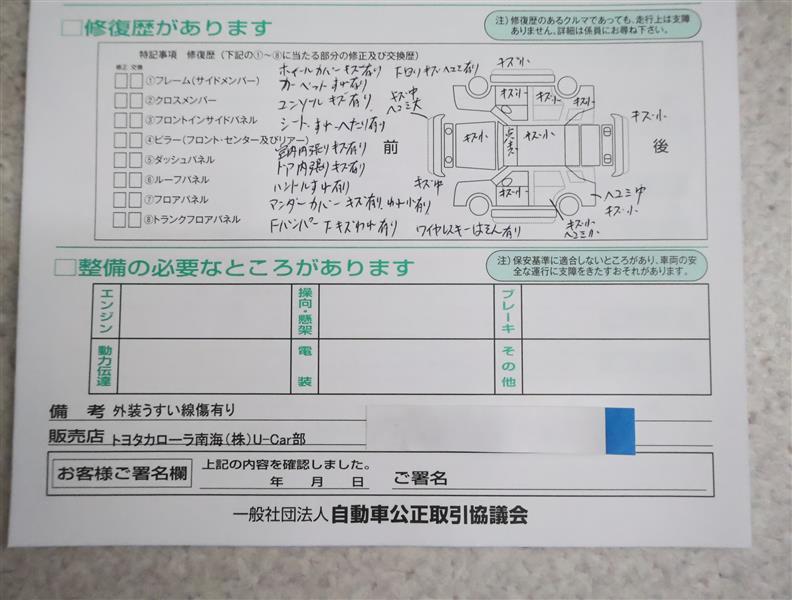 □修復歴があります
注）修復歴のあるクルマであっても、走行上は支障
ありません。詳細は係員にお尋ね下さい。
特記事項 修復歴（下記の①～⑧に当たる部分の修正及び交換歴）
修正 交換
①フレーム（サイドメンバー）
②クロスメンバー
③フロントインサイドパネル
④ピラー（フロント・センター及びリアー）
⑤ダッシュパネル
⑥ルーフパネル
⑦フロアパネル
⑧トランクフロアパネル
ホイールカバーキズ有り 下回りキズヘコミ有り
カーペットすれ有り
コンソールキズ有り
シートすれ・へたり有り
室内内張りキズ有り
ドア内張りキズ有り
ハンドルすれ有り
アンダーカバーキズ有り、われ小有り
Fバンパー下キズわれ有り ワイヤレスキーはそん有り
前
後
キズ小
キズ中
ヘコミ大
キズ小
キズ小
キズ小
キズ小
キズ小
キズ小
キズ小
キズ中
キズ小
ヘコミ中
キズ小
キズ小
ヘコミ小
□整備の必要なところがあります
注）保安基準に適合しないところがあり、車両の安
全な運行に支障をきたすおそれがあります。
エンジン
操向・懸架
ブレーキ
動力伝達
電装
その他
備考 外装うすい線傷有り
販売店 トヨタカローラ南海（株）U-Car部
お客様ご署名欄
上記の内容を確認しました。
年 月 日 ご署名
一般社団法人 自動車公正取引協議会